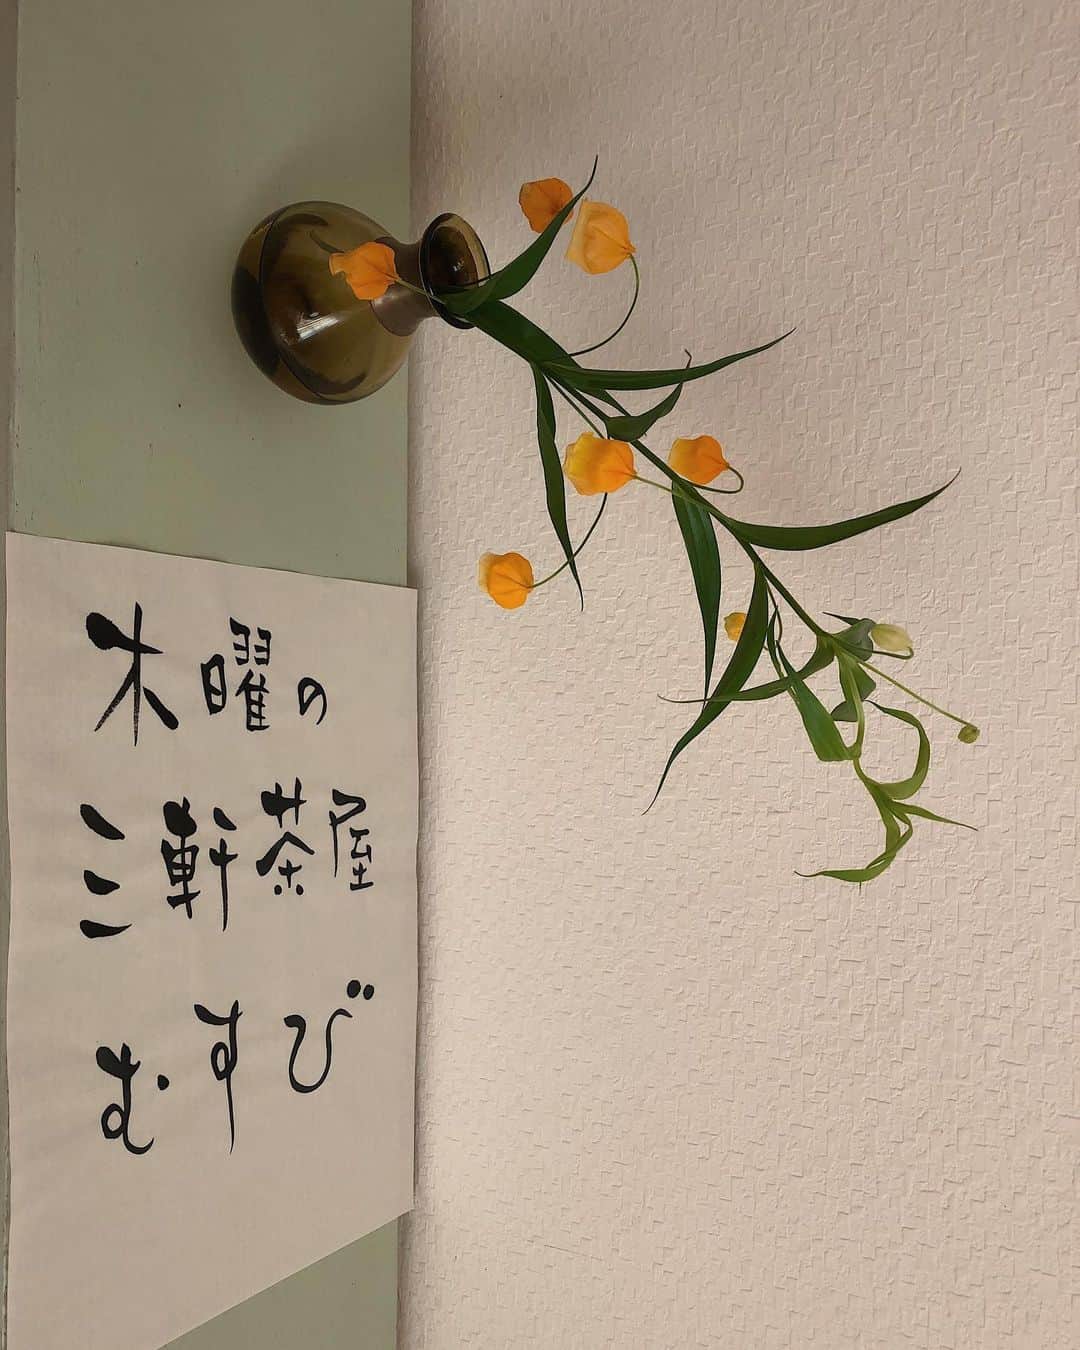 木曜の
三軒茶屋
むすび